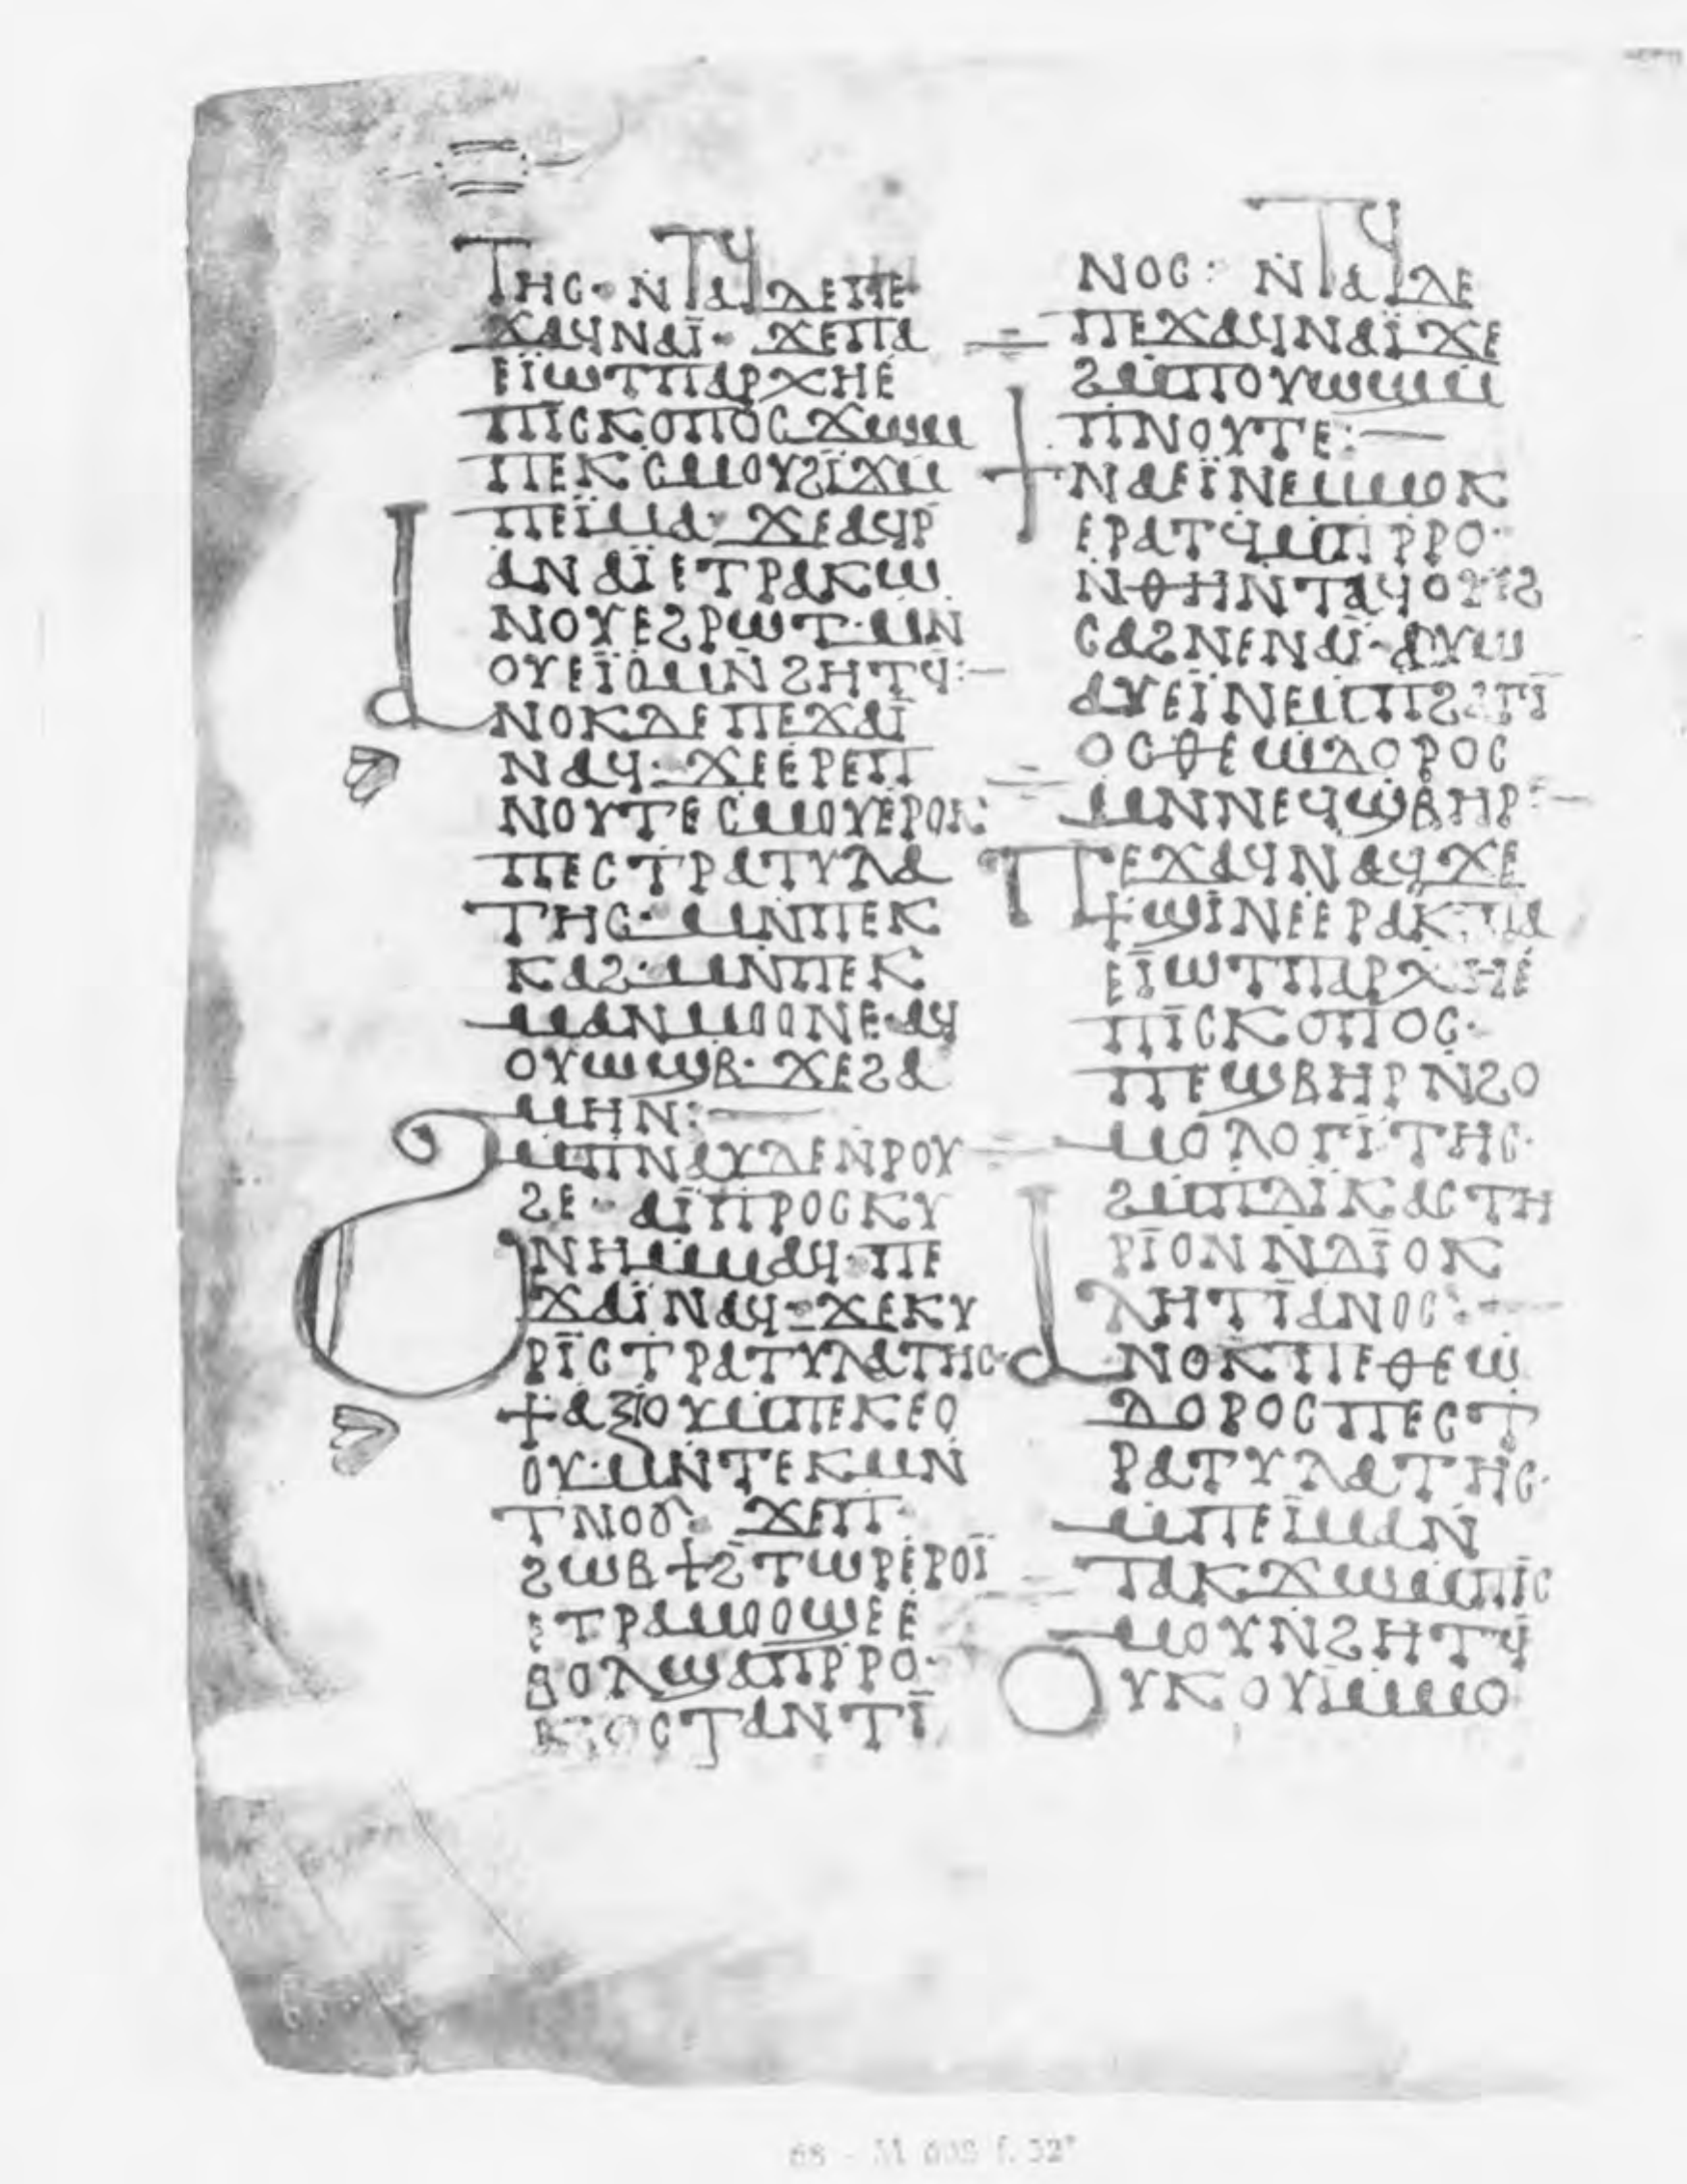 ⲦⲎⲤ· ⲚⲦⲀϤⲆⲈⲠⲈ
ϪⲀϤⲚⲀⲒ̈· ϪⲈⲠⲀ
ⲈⲒ̈ⲰⲦⲠⲀⲢⲬⲎⲈ
ⲠⲒⲤⲔⲞⲠⲞⲤ ϪⲰⲘ
ⲠⲈⲔⲤⲘⲞⲨϨⲒϪⲘ
ⲠⲈⲒ̈ⲘⲀ· ϪⲈⲀϤⲢ
ⲀⲚⲀⲒ̈ⲈⲦⲢⲀⲔⲰ
ⲚⲞⲨⲈϨⲢⲰⲦ·ⲘⲚ
ⲞⲨⲈⲒ̈ⲞⲘⲚ̄ϨⲎⲦϤ̄:—
ⲀⲚⲞⲔⲆⲈⲠⲈϪⲀⲒ̈
ⲚⲀϤ· ϪⲈⲈⲢⲈⲠ
ⲚⲞⲨⲦⲈⲤⲘⲞⲨⲈⲢⲞⲔ·
ⲠⲈⲤⲦⲢⲀⲦⲨⲖⲀ
ⲦⲎⲤ· ⲘⲚⲠⲈⲔ
ⲔⲀϨ·ⲘⲚⲠⲈⲔ
ⲘⲀⲚⲘⲞⲞⲚⲈ·ⲀϤ
ⲞⲨⲰϢⲂ· ϪⲈϨⲀ
ⲘⲎⲚ:—
ϨⲘⲠⲚⲀⲨⲆⲈⲚⲢⲞⲨ
ϨⲈ· ⲀⲒ̈ⲠⲢⲞⲤⲔⲨ
ⲚⲎⲘⲘⲀϤ·ⲠⲈ
ϪⲀⲒ̈ⲚⲀϤ· ϪⲈⲔⲨ
ⲢⲒ̄ⲤⲦⲢⲀⲦⲨⲖⲀⲦⲎⲤ·
ϮⲀⲜⲒⲞⲨⲘⲠⲈⲔⲈⲞ
ⲞⲨ·ⲘⲚⲦⲈⲔⲘⲚ
ⲦⲚⲞϬ· ϪⲈⲠ
ϨⲰⲂϮϨⲦⲰⲢⲈⲢⲞⲒ̈
ⲈⲦⲢⲀⲘⲞⲞϢⲈⲈ
ⲂⲞⲖϢⲀⲠⲢⲢⲞ·
ⲔⲞⲤⲦⲀⲚⲦⲒ̄
ⲚⲞⲤ: ⲚⲦⲀϤⲆⲈ
ⲠⲈϪⲀϤⲚⲀⲒ̈ϪⲈ
ϨⲘⲠⲞⲨⲰϢⲘ
ⲠⲚⲞⲨⲦⲈ:—
ϮⲚⲀⲈⲒ̈ⲚⲈⲘⲘⲞⲔ
ⲈⲢⲀⲦϤⲘⲠⲢⲢⲞ·
ⲚⲐⲎⲚⲦⲀϤⲞⲨⲈϨ
ⲤⲀϨⲚⲈⲚⲀⲒ̈·ⲀⲨⲰ
ⲀⲨⲈⲒ̈ⲚⲈⲘⲠϨⲀⲄⲒ̄
ⲞⲤⲐⲈⲰⲆⲞⲢⲞⲤ
ⲘⲚⲚⲈϤϢⲂⲎⲢ:—
ⲠⲈϪⲀϤⲚⲀϤϪⲈ
ϮϢⲒ̄ⲚⲈⲈⲢⲀⲔⲠⲀ
ⲈⲒ̈ⲰⲦⲠⲀⲢⲬⲎⲈ
ⲠⲒ̄ⲤⲔⲞⲠⲞⲤ·
ⲠⲈϢⲂⲎⲢⲚϨⲞ
ⲘⲞⲖⲞⲄⲒ̄ⲦⲎⲤ·
ϨⲘⲠⲆⲒ̄ⲔⲀⲤⲦⲎ
ⲢⲒ̄ⲞⲚⲚⲆⲒ̄ⲞⲔ
ⲖⲎⲦⲒ̄ⲀⲚⲞⲤ:—
ⲀⲚⲞⲔⲠⲈⲐⲈⲰ
ⲆⲞⲢⲞⲤⲠⲈⲤⲦ
ⲢⲀⲦⲨⲖⲀⲦⲎⲤ·
ⲘⲠⲈⲒ̈ⲘⲀⲚ
ⲦⲀⲔϪⲰⲘⲠⲒ̄Ⲥ
ⲘⲞⲨⲚϨⲎⲦϤ̄
ⲞⲨⲔⲞⲨⲒ̈ⲘⲘⲞ